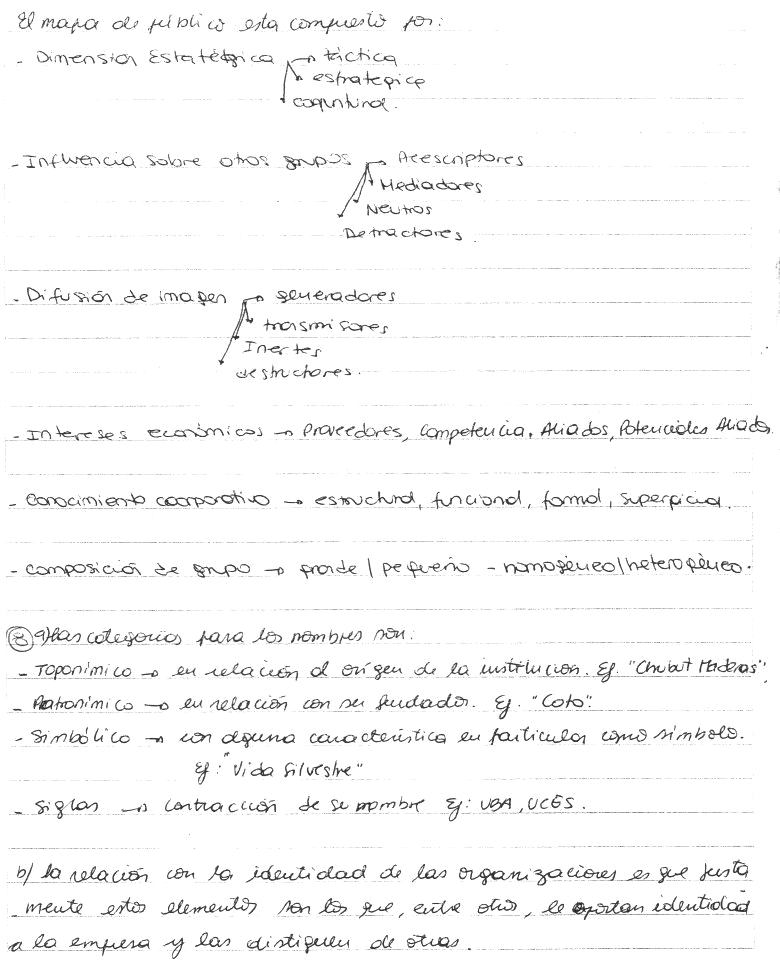 El mapa de público esta compuesto por:
- Dimensión Estratégica → táctica
estrategica
coyuntural.
- Influencia sobre otros grupos → Prescriptores
Mediadores
Neutros
Detractores.
- Difusión de imagen → generadores
trasmisores
Inertes
destructores.
- Intereses económicos → Proveedores, Competencia, Aliados, Potenciales Aliados.
- Conocimiento coorporativo → estructural, funcional, formal, superficial.
- Composición de grupo → grande / pequeño - homogéneo/heterogéneo.
8 a) Las categorias para los nombres son:
- Toponímico → en relación al orígen de la institucion. Ej. "Chubut Maderas",
- Patronímico → en relación con su fundador. Ej. "Coto".
- Simbólico → con alguna característica en particular como símbolo.
Ej: "Vida Silvestre"
- Siglas → contracción de se nombre Ej: UBA, UCES.
b/ la relación con la identidad de las organizaciones es que justa
mente estos elementos son los que, entre otros, le aportan identidad
a la empresa y las distiguen de otras.